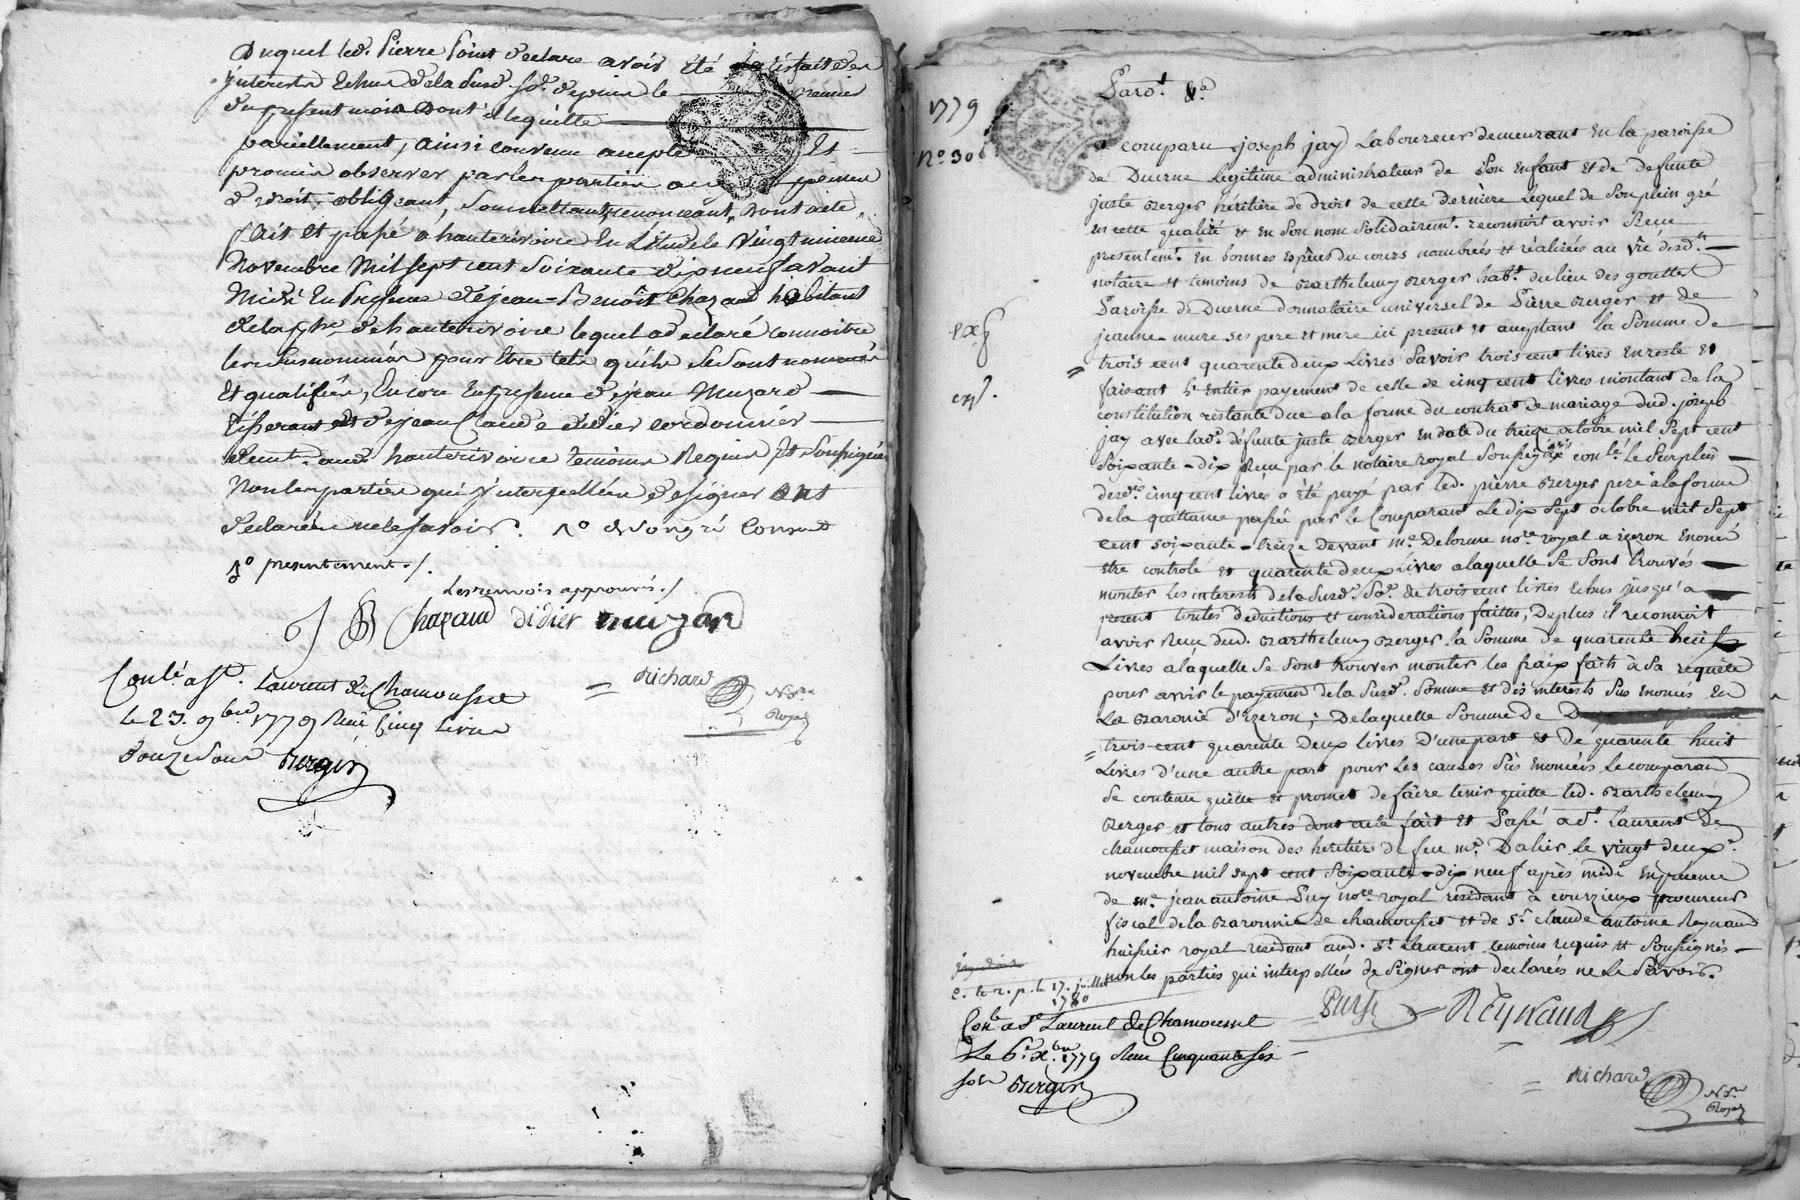 Duquel led. Pierre Point declare avoir été satisfait des
Interests Echus de la susd. so.e depuis le premier
du present mois dont il equitte
pareillement, ainsi convenu accepté Et
promis observer par les parties aux peines
de droit, obligeant, soumettant, renonceant, Dont acte,
fait et passé a hauterivoire En Létude le Vingt
Novembre Mil sept cent soixante dix neuf avant
Midi En presence de jean-Benoit Chazaud habitant
de la p.sse de hauterivoire lequel a declaré connoitre
les susnommés pour Etre tels qu'ils se sont nommés
Et qualifiés, Encore En presence de jean Muzard
tisserant et de jean Claude didier cordonnier
demt. aud. hauterivoire temoins Requis et soussignés
Non les parties qui de ce interpellées de signer ont
declarées ne le savoir. 1º de son gré Consent
1º presentement ./.
Les renvois approuvés ./
Chazaud didier muzard
Conlé a St. Laurent de Chamousset
le 23. 9bre 1779 Reçu Cinq Livres
douze sous Bergier
Richard
No.re
Royal
1779
Nº. 306
Pard.t &.a
a comparu joseph jay Laboureur demeurant En la paroisse
de Duerne Legitime administrateur de son Enfant et de defunte
juste Berger heritière de droit de cette derniere Lequel de son plein gré
en cette qualité et en son nom solidairemt. reconnoit avoir Reçu
presentemt. En bonnes Espèces du cours nombrées et réalisées au vû desd. ns
notaire et temoins de Barthelemy Berger habt. du lieu des gouttes
Paroisse de Duerne donnataire universel de Pierre Berger et de
jeanne mure ses pere et mere ici present et acceptant la Somme de
trois cent quarente deux Livres Savoir trois cent livres En reste et
faisant L'Entier payement de celle de cinq cent livres montant de la
constitution restante due a la forme du contrat de mariage dud. joseph
jay avec lad.e défunte juste Berger En date du treize octobre mil Sept cent
Soixante-dix Reçu par le notaire royal Soussigné conlé le Surplus
desd. cinq cent livres a été payé par led. pierre Berger pere a la forme
de la quittance passée par le Comparant Le dix Sept octobre mil Sept
Cent soixante-treize devant Me. Delorme nore royal a izeron Enoncé
etre controlé et quarente deux Livres a laquelle se Sont trouvés
monter les interests de la Susd. So.e de trois cent livres Echus jusqu'à
present toutes deductions et considerations faittes, De plus il reconnoit
avoir Reçu dud. Barthelemy Berger la Somme de quarente huit
Livres a laquelle Se Sont trouver monter les fraix faits à Sa requête
pour avoir le payement de la Susd. Somme et des interests Sus Enoncés En
La Baronie d'Izeron; De laquelle Somme de
trois cent quarente deux livres D'une part et de quarente huit
Livres d'une autre part pour Les causes Sus Enoncées Le comparant
Se contente quitte et promet de faire tenir quitte led. Barthelemy
Berger et tous autres dont acte fait et Passé a St. Laurent De
chamousset maison des heritiers de feu me. Dalier Le vingt deux
novembre mil sept cent soixante-dix neuf après midi En presence
de me. jean antoine Puy nore royal residant à courzieux procureur
fiscal de la Baronnie de chamousset et de Sr. claude antoine Reynaud
huissier royal residant aud. St. Laurent temoins requis et soussignés
non les parties qui interpellées de Signer ont declarées ne Le Savoir.
exp.
exp.
E. le n. p. le 17. juillet
1780
Conle a St Laurent de Chamousset
Le 6e Xbre 1779 Reçu Cinquante six
sols Bergier
Reynaud
Richard
No.re
Royal